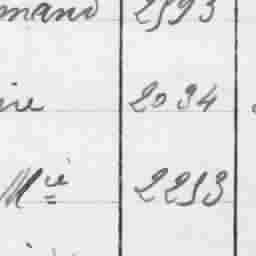 mand 2593
ire 2034
Mie 2253